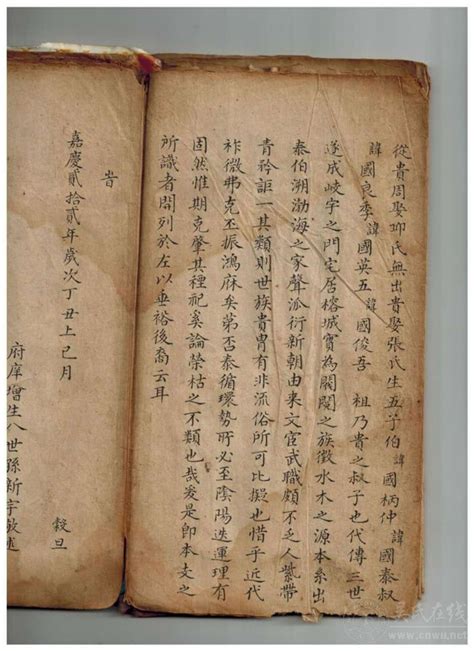 從貴周娶聊氏無出貴娶張氏生五子伯諱國柄仲諱國泰叔
諱國良季諱國英五諱國俊吾祖乃貴之叔子也代傳三世
遂成岐字之門宅居榕城實為閥閱之族徵水木之源本系出
泰伯溯渤海之家聲派衍新朝由来文官武職頗不乏人紫帶
青衿詎一其類則世族貴胄有非流俗所可比擬也惜乎近代
祚微弗克丕振鴻麻矣第否泰循環勢所必至陰陽迭運理有
固然惟期克肇其禋祀奚論榮枯之不類也哉爰是即本支之
所識者開列於左以垂裕後裔云耳
旹
嘉慶貳拾貳年歲次丁丑上巳月 穀旦
府庠增生八世孫新宇敬述
吴氏在线
www.cnwu.net